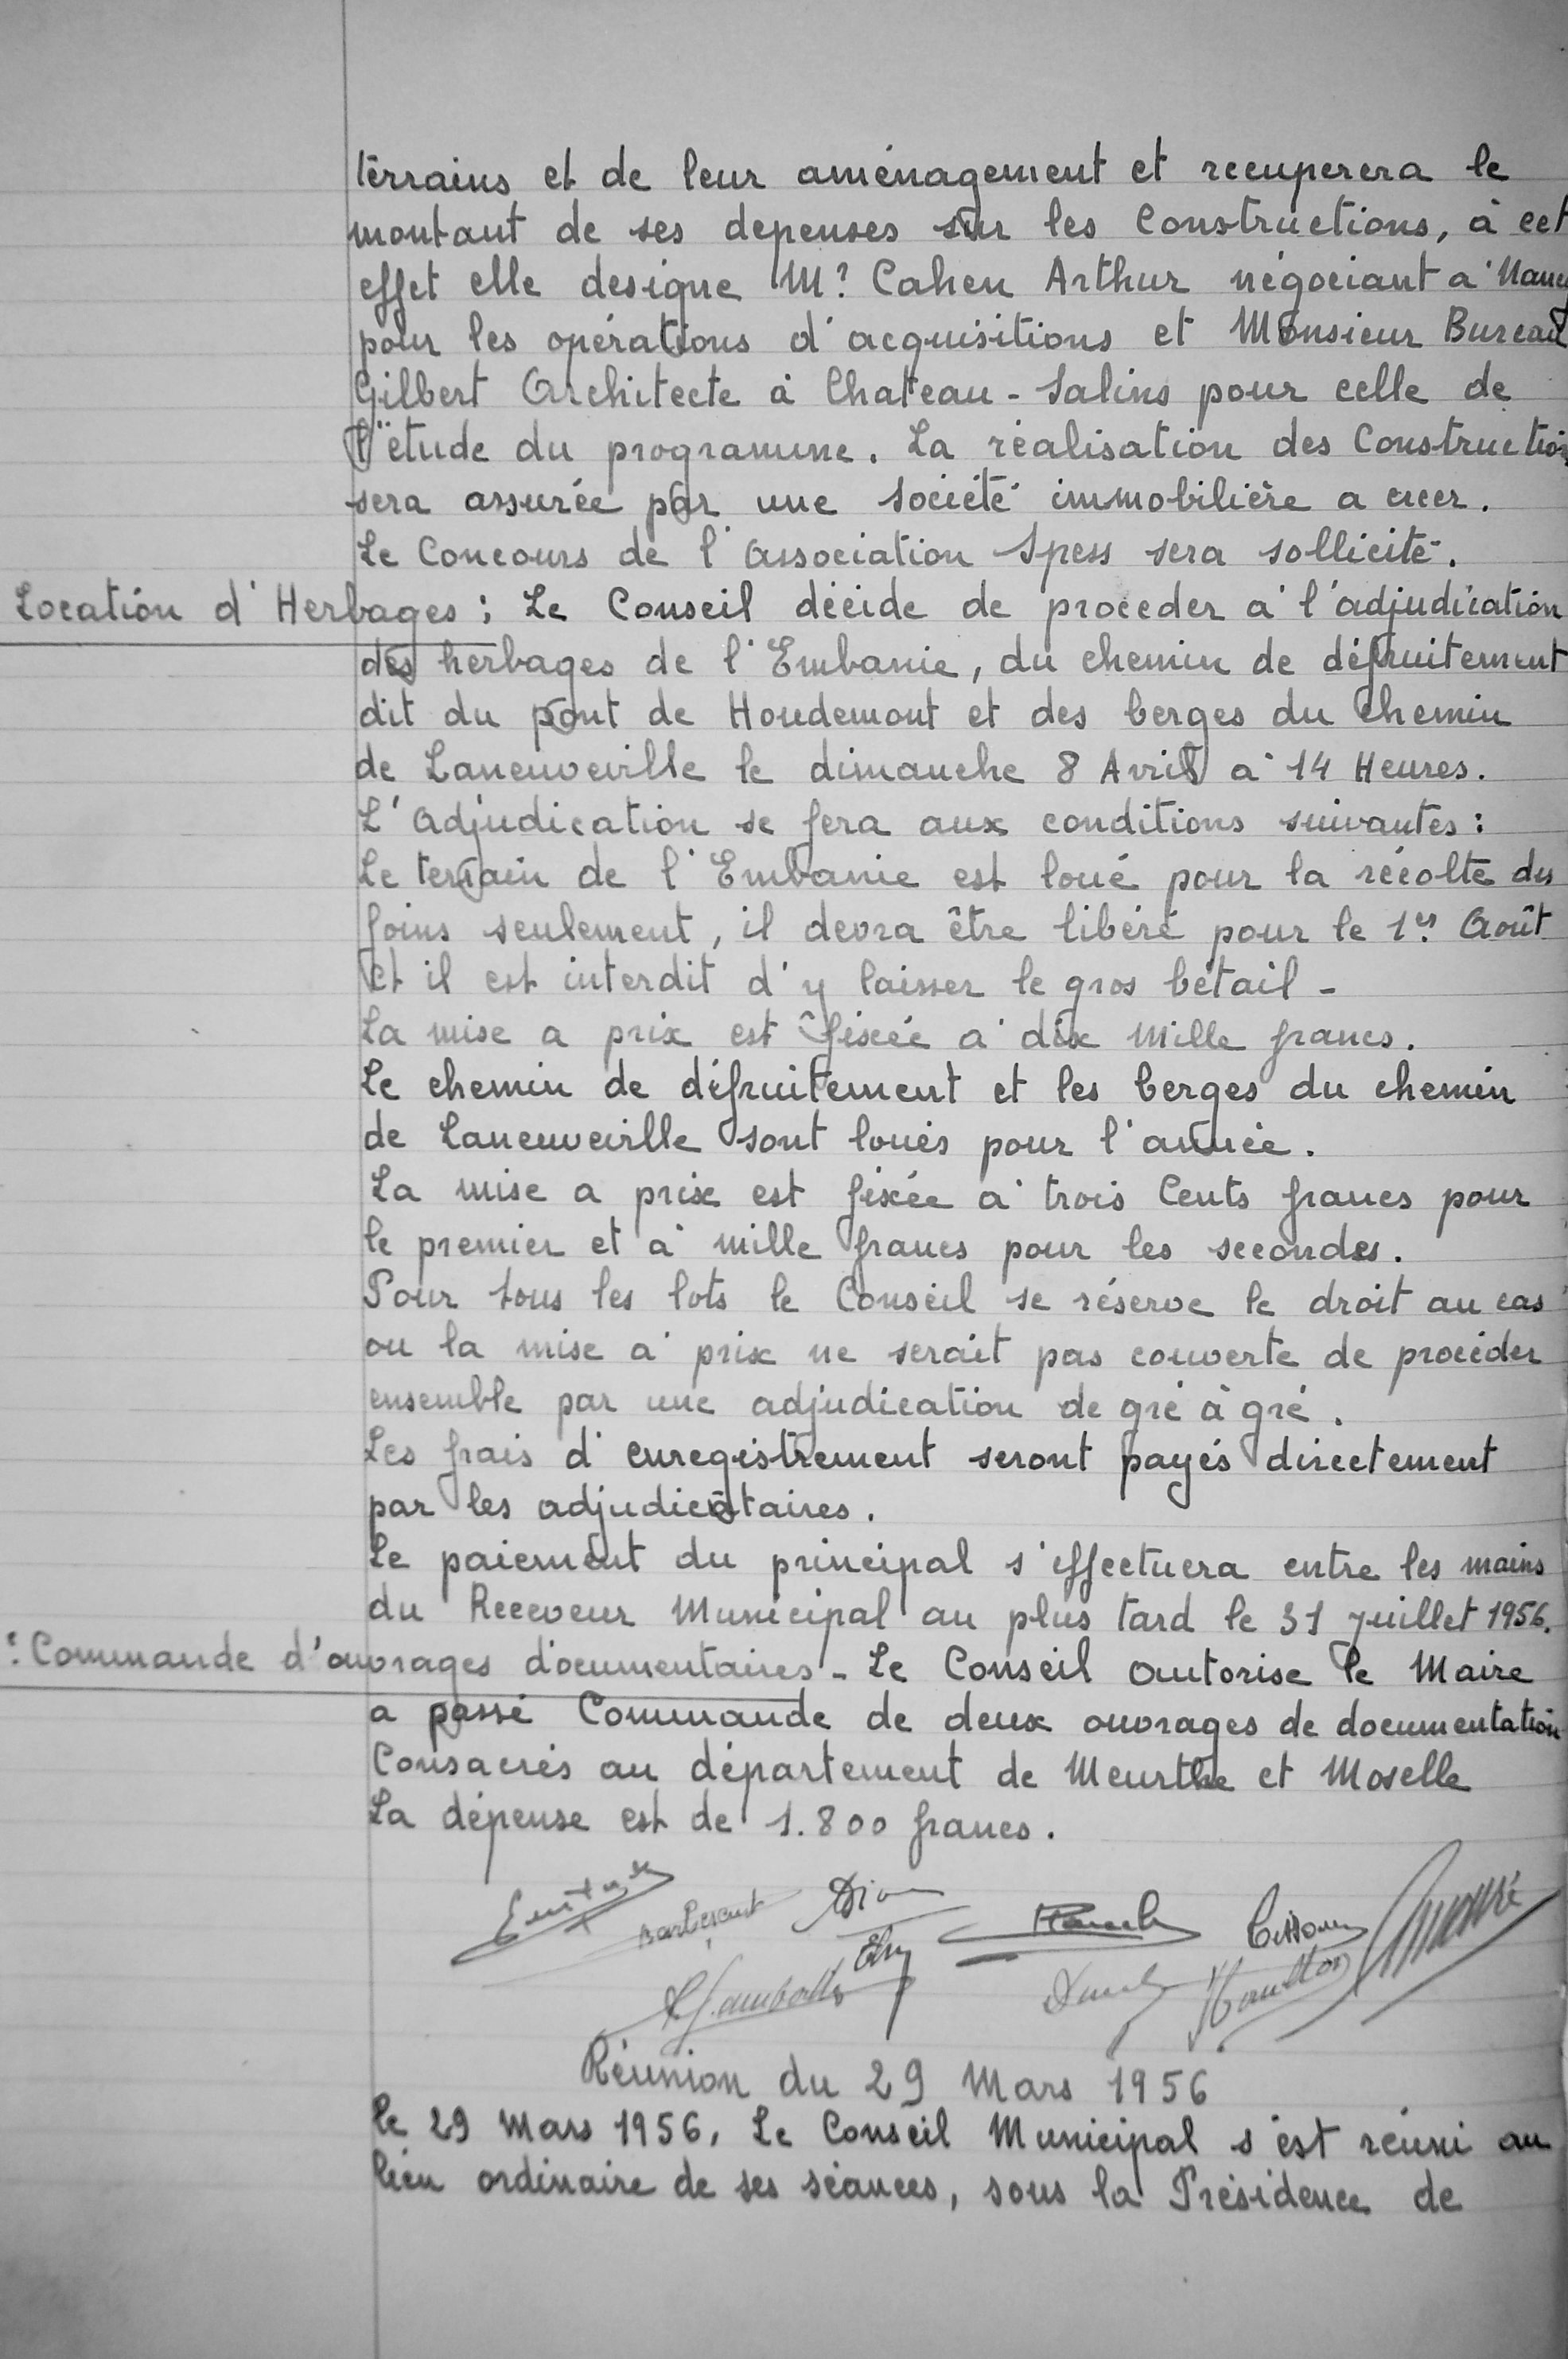 terrains et de leur aménagement et recuperera le
montant de ses depenses sur les Constructions, à cet
effet elle designe Mr Cahen Arthur négociant a' Nancy
pour les opérations d'acquisitions et Monsieur Bureau
Gilbert Architecte à Chateau-Salins pour celle de
l'étude du programme. La réalisation des Construction
sera assurée par une Société immobilière a créer.
Le Concours de l'Association Spess sera sollicité.
Location d'Herbages : Le Conseil décide de proceder a' l'adjudication
des herbages de l'Embanie, du chemin de défruitement
dit du pont de Houdemont et des berges du Chemin
de Laneuveville le dimanche 8 Avril a' 14 Heures.
L'Adjudication se fera aux conditions suivantes :
Le terrain de l'Embanie est loué pour la récolte des
foins seulement, il devra être libéré pour le 1er Août
et il est interdit d'y laisser le gros bétail -
La mise a prix est fixée a' dix Mille francs.
Le chemin de défruitement et les berges du chemin
de Laneuveville sont loués pour l'année.
La mise a prix est fixée a' trois Cents francs pour
le premier et a' mille francs pour les secondes.
Pour tous les lots le Conseil se réserve le droit au cas
ou la mise a' prix ne serait pas couverte de procéder
ensemble par une adjudication de gré à gré.
Les frais d'enregistrement seront payés directement
par les adjudicataires.
Le paiement du principal s'effectuera entre les mains
du Receveur Municipal au plus tard le 31 juillet 1956.
: Commande d'ouvrages documentaires - Le Conseil autorise le Maire
a passé Commande de deux ouvrages de documentation
Consacrés au département de Meurthe et Moselle
La dépense est de 1.800 francs.
Réunion du 29 Mars 1956
Le 29 Mars 1956, Le Conseil Municipal s'est réuni au
lieu ordinaire de ses séances, sous la Présidence de